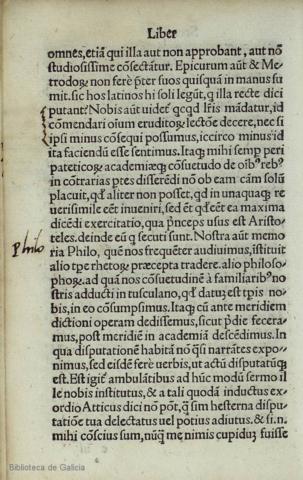 Liber
omnes, etiã qui illa aut non approbant, aut nõ
studiosissime cõsectãtur. Epicurum aũt & Me-
trodoꝝ non ferè p̃ter suos quisquã in manus su
mit. sic hos latinos hi soli legũt, q illa recte dici
putant? Nobis aũt uidet̃ qcqd lr̃is mãdatur, id
cõmendari oĩum eruditoꝝ lectõe decere, nec si
ipsi minus cõsequi possumus, iccirco minus id
ita faciendũ esse sentimus. Itaq̃ mihi semp̱ peri
pateticoꝝ academiæq̃ cõsuetudo de oĩbꝰ rebꝰ
in cõtrarias p̃tes disserẽdi nõ ob eam cãm solũ
placuit, qd̃ aliter non posset, qd in unaquaq̃ re
uerisimile eẽt inueniri, sed ẽt qd̃ eẽt ea maxima
dicẽdi exercitatio, qua p̃nceps usus est Aristo-
teles. deinde eũ q secuti sunt. Nostra aũt memo
ria Philo, quẽ nos frequẽter audiuimus, istituit
alio tp̃e rhetoꝝ præcepta tradere. alio philoso-
phoꝝ. ad quã nos cõsuetudinẽ à familiaribꝰ no
stris adducti in tusculano, qd̃ datuꝫ est tp̃is no
bis, in eo cõsumpsimus. Itaq̃ cũ ante meridiem
dictioni operam dedissemus, sicut p̃die fecera-
mus, post meridiẽ in academiã descẽdimus. In
qua disputationẽ habitã nõ q̃si narrãtes expo-
nimus, sed eisdẽ ferè uerbis, ut actũ disputatũq̃
est. Est igit̃ ambulãtibus ad hũc modũ sermo il
le nobis institutus, & a tali quodã inductus ex-
ordio Atticus dici nõ põt, q̃ sim hesterna dispu-
tatiõe tua delectatus uel potius adiutus. & si.n.
mihi cõscius sum, nũq̃ me nimis cupiduꝫ fuisse
philo
Biblioteca de Galicia